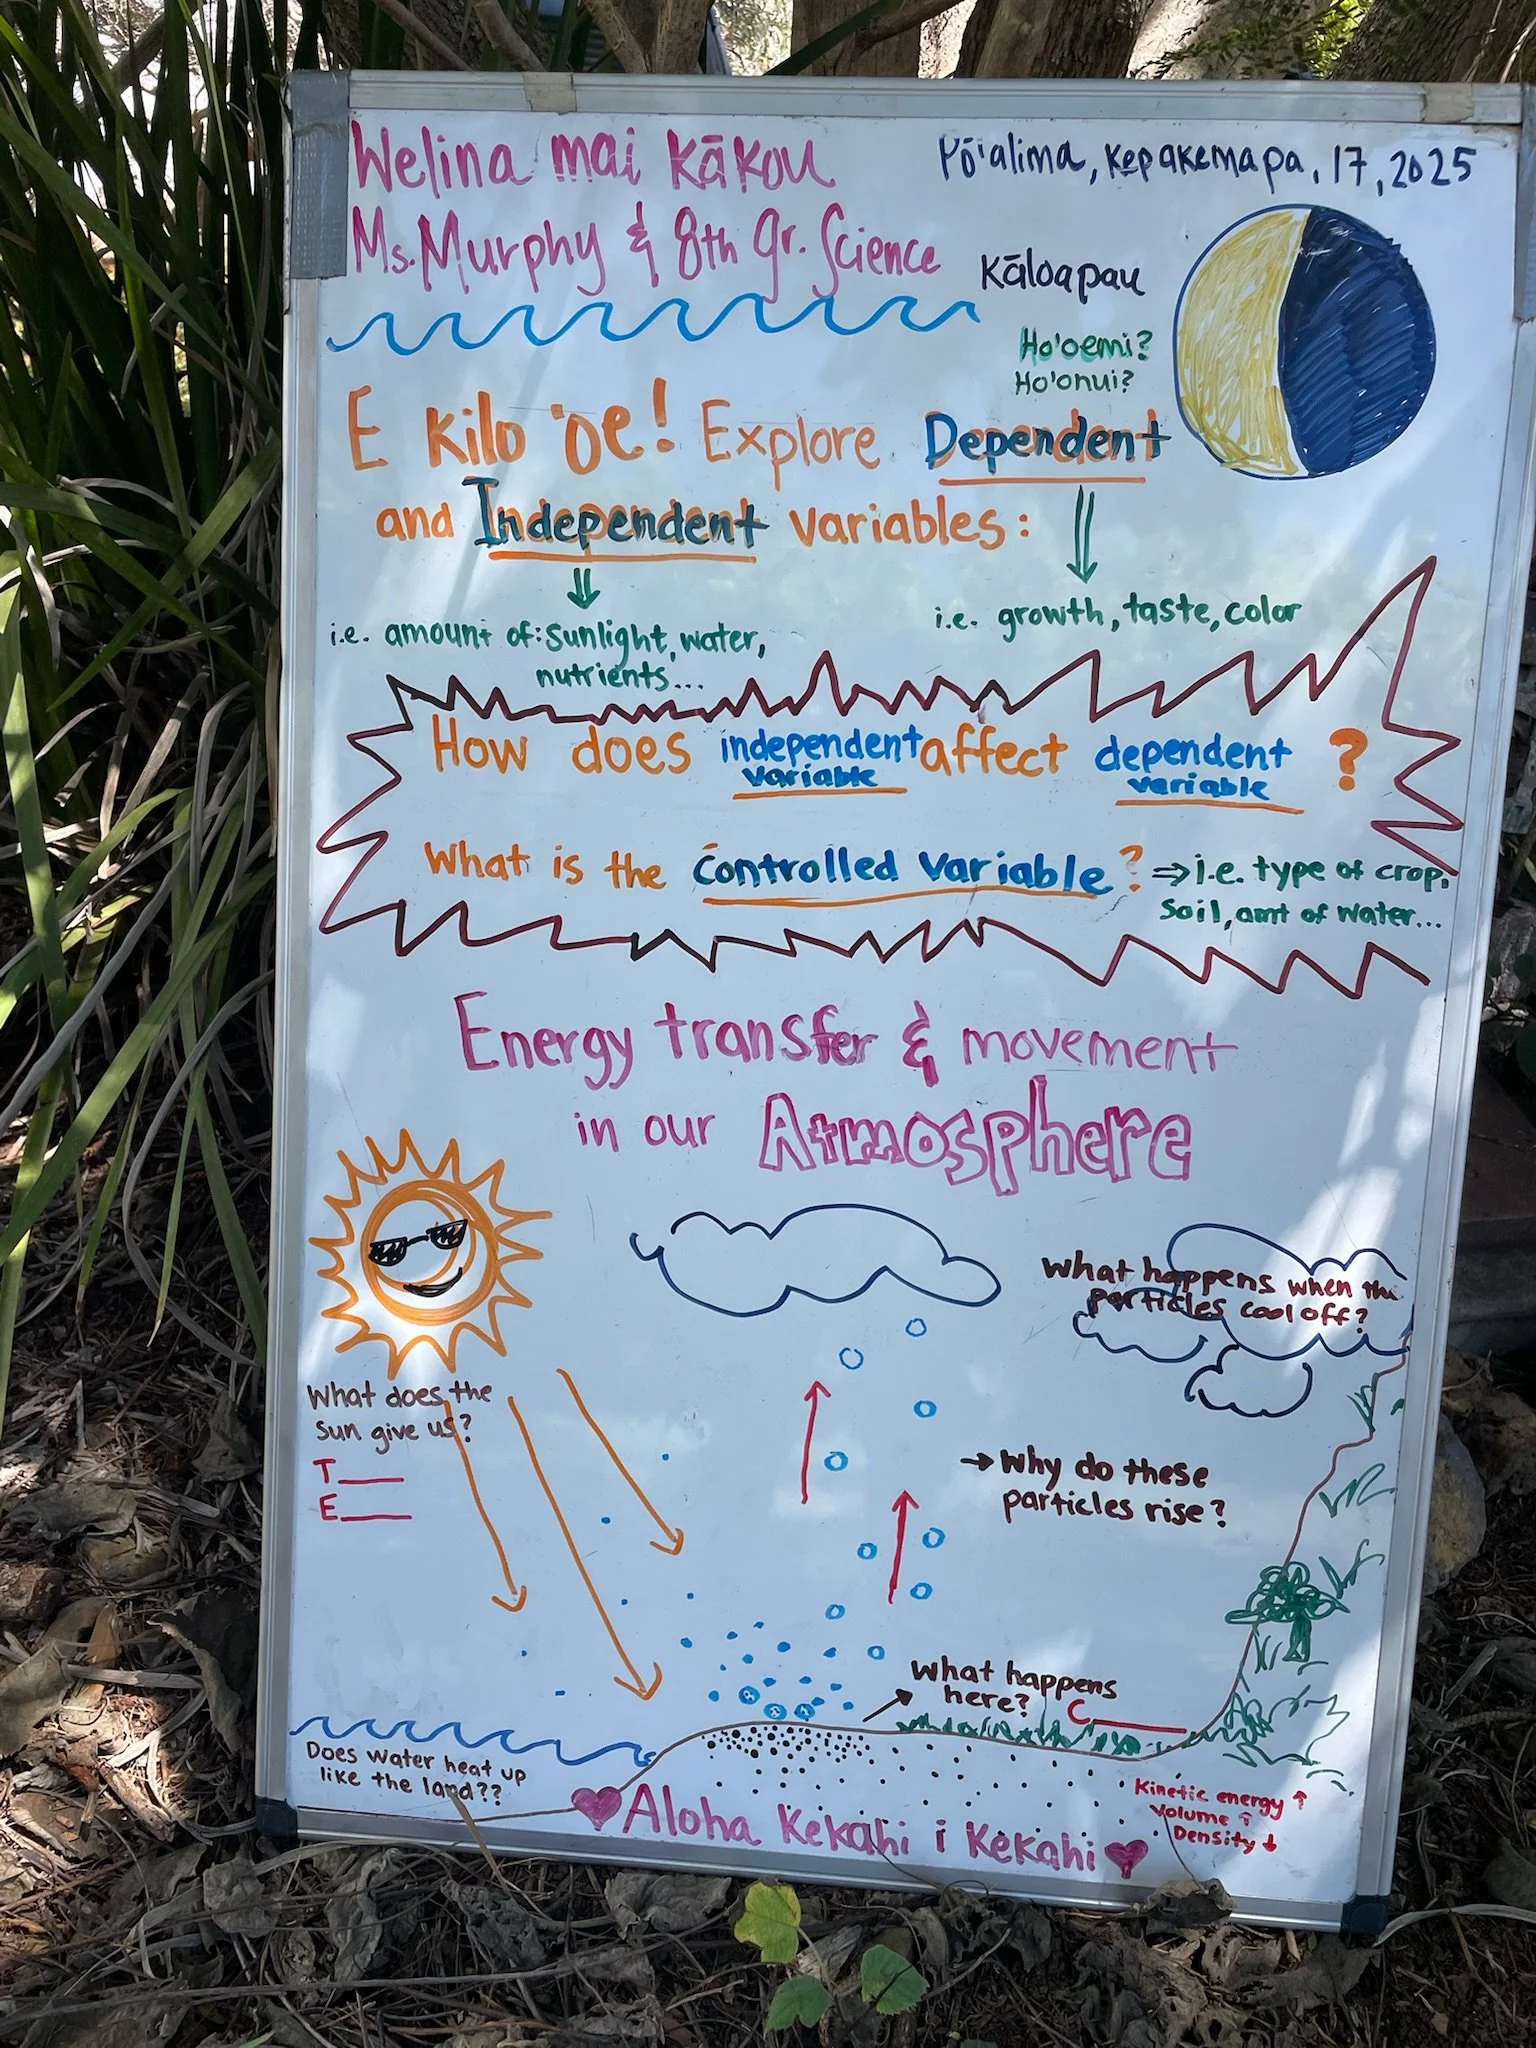 Welina mai kākou
Ms. Murphy & 8th gr. Science
Pō'alima, kepakemapa, 17, 2025
Kāloapau
Ho'oemi?
Ho'onui?
E kilo 'oe! Explore Dependent
and Independent variables:
i.e. amount of: sunlight, water,
nutrients...
i.e. growth, taste, color
How does independent variable affect dependent variable ?
What is the controlled variable? ⇒ i.e. type of crop,
soil, amt of water...
Energy transfer & movement
in our Atmosphere
What happens when the
particles cool off?
What does the
sun give us?
T____
E____
→ Why do these
particles rise?
What happens
here?
C____
Does water heat up
like the land??
Kinetic energy ↑
Volume ↑
Density ↓
♥ Aloha Kekahi i Kekahi ♥